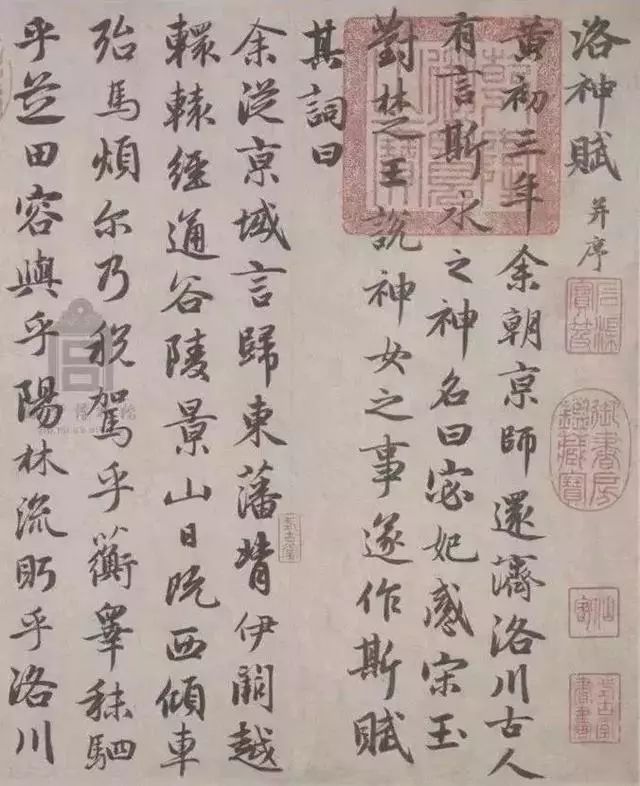 洛神賦 并序
黄初三年余朝京師還濟洛川古人
有言斯水之神名曰宓妃感宋玉
對楚王說神女之事遂作斯賦
其詞曰
余從京域言歸東藩背伊闕越
轘轅經通谷陵景山日既西傾車
殆馬煩尔乃稅駕乎蘅皋秣駟
乎芝田容與乎陽林流眄乎洛川
石渠寶笈
御書房鑑藏寶